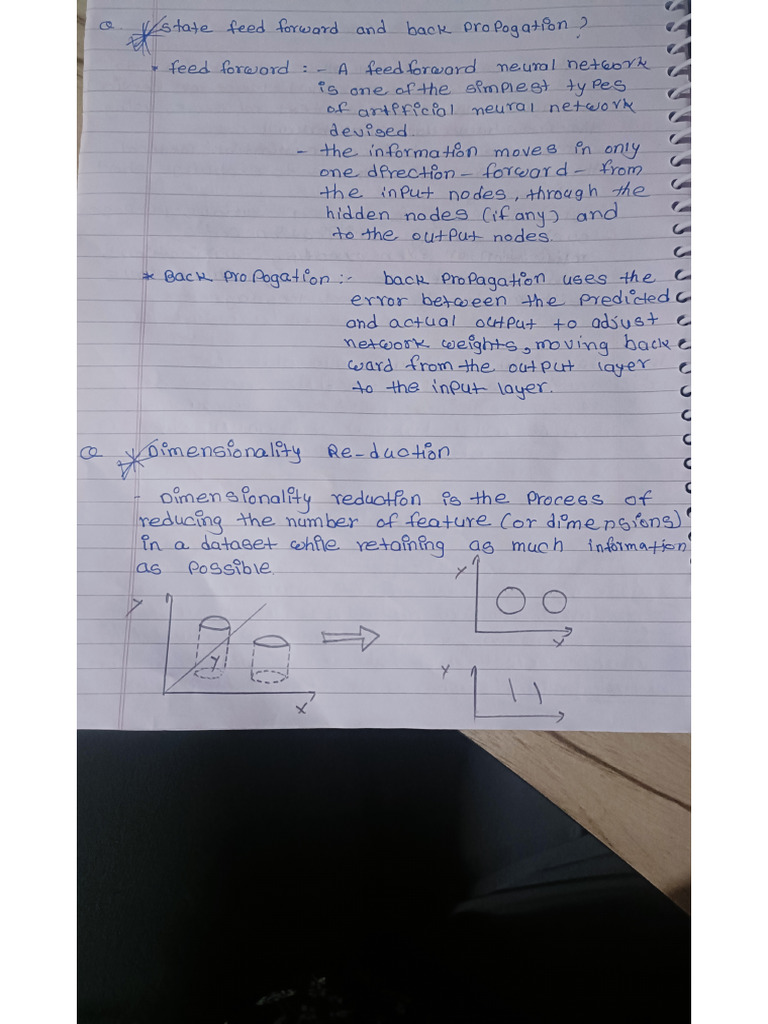 Q state feed forward and back propogation?
* feed forward : - A feedforward neural network
is one of the simplest types
of artificial neural network
devised.
- the information moves in only
one direction - forward - from
the input nodes, through the
hidden nodes (if any) and
to the output nodes.
* Back propogation :- back propagation uses the
error between the predicted
and actual output to adjust
network weights, moving back
ward from the output layer
to the input layer.
Q Dimensionality Re-duction
- Dimensionality reduction is the process of
reducing the number of feature (or dimensions)
in a dataset while retaining as much information
as possible.
Y
X
Y
Y
X
Y